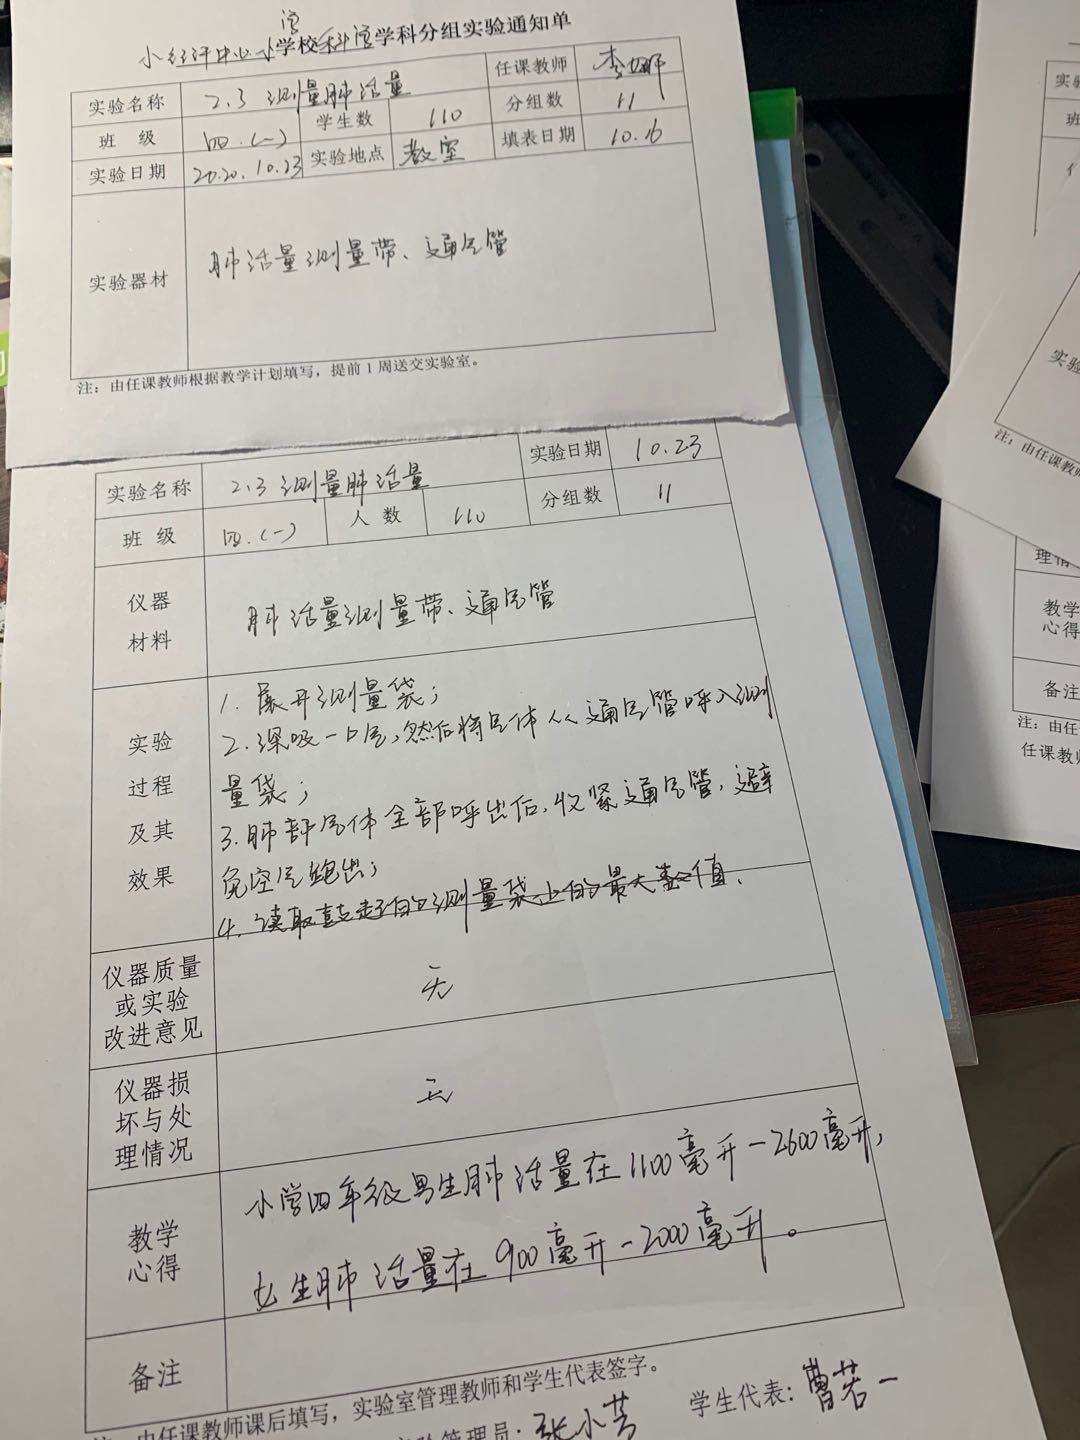 中心小学校科学学科分组实验通知单
实验名称 2.3 测量肺活量 任课教师 李娜
班 级 四.(一) 学生数 110 分组数 11
实验日期 2020.10.23 实验地点 教室 填表日期 10.16
实验器材 肺活量测量带、通气管
注：由任课教师根据教学计划填写，提前1周送交实验室。
实验名称 2.3 测量肺活量 实验日期 10.23
班 级 四.(一) 人 数 110 分组数 11
仪器
材料
肺活量测量带、通气管
实验
过程
及其
效果
1. 展开测量袋；
2. 深吸一口气，然后将气体从通气管呼入测
量袋；
3. 肺部气体全部呼出后，收紧通气管，避
免空气跑出；
4. 读取鼓起的测量袋上的最大数值.
仪器质量
或实验
改进意见
无
仪器损
坏与处
理情况
无
教学
心得
小学四年级男生肺活量在1100毫升-2600毫升，
女生肺活量在900毫升-2000毫升。
备注
由任课教师课后填写，实验室管理教师和学生代表签字。
管理员：张小芳 学生代表：曹若一
实验
注：由任课教师
理情
教学
心得
备注
注：由任
任课教师